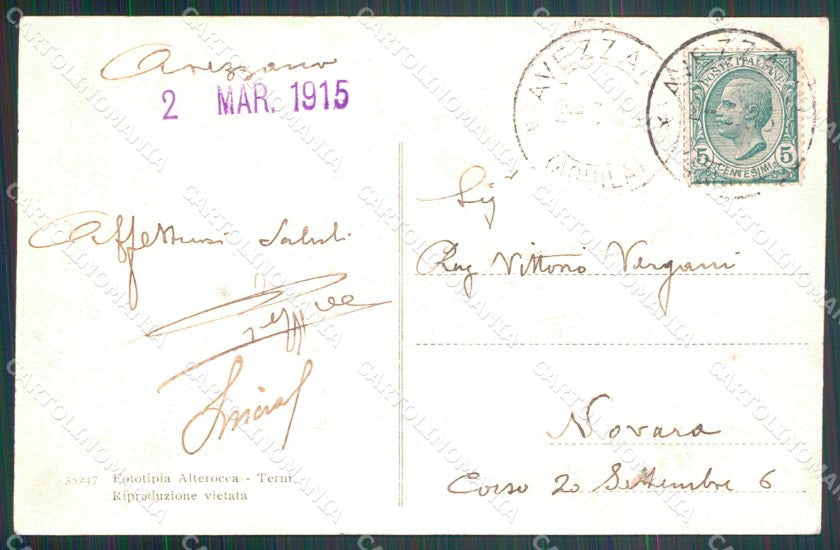 Avezzano
2 MAR. 1915
AVEZZANO
(AQUILA)
POSTE ITALIANE
5 CENTESIMI 5
Affettuosi Saluti
Sigr
Rag Vittorio Vergani
Novara
Corso 20 Settembre 6
35247 Fototipia Alterocca - Terni
Riproduzione vietata
CARTOLINOMANIA